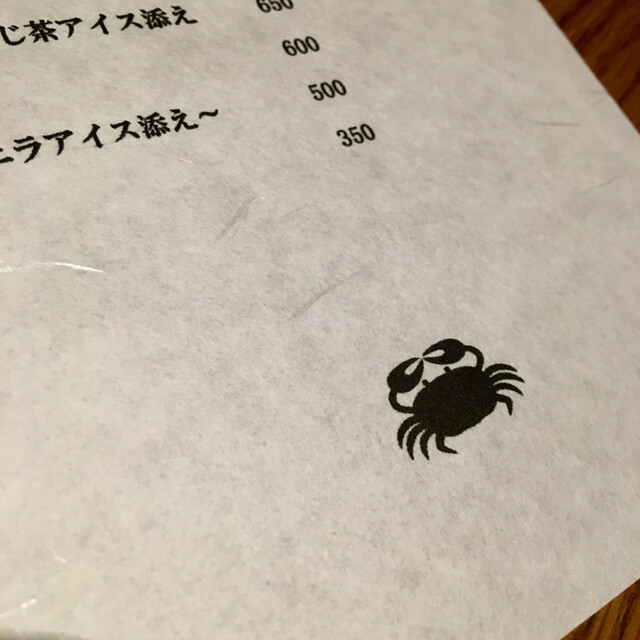 じ茶アイス添え 650
600
500
ニラアイス添え～ 350